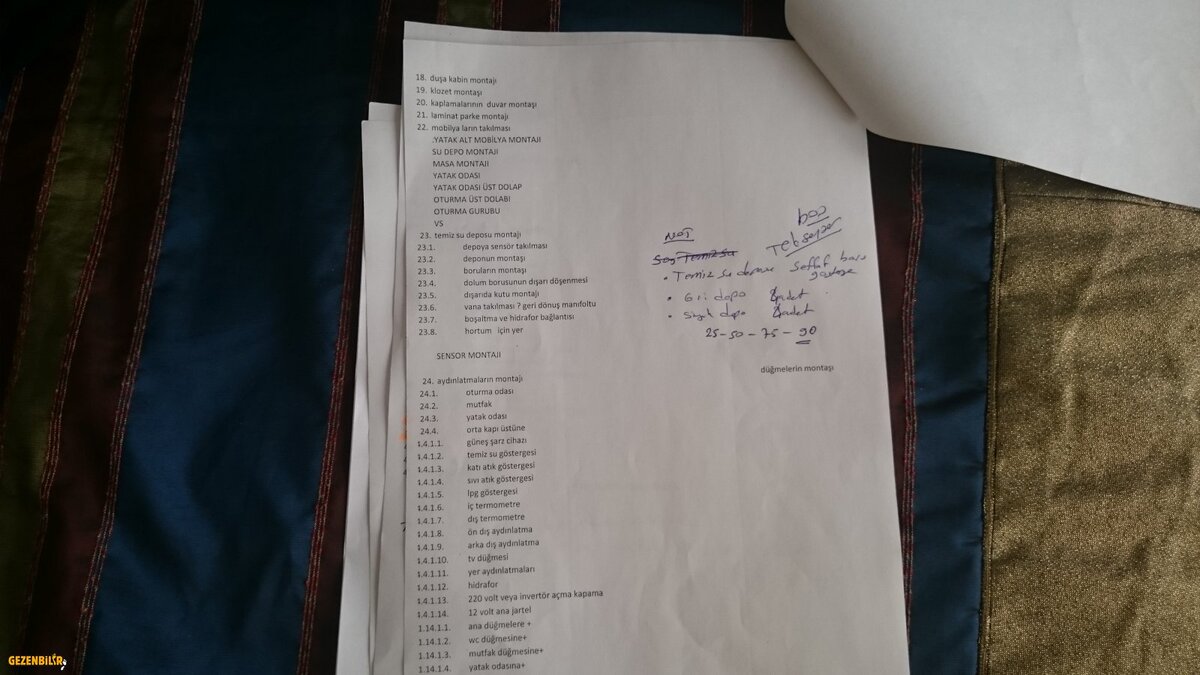 18. duşa kabin montajı
19. klozet montaşı
20. kaplamalarının duvar montaşı
21. laminat parke montajı
22. mobilya ların takılması
YATAK ALT MOBİLYA MONTAJI
SU DEPO MONTAJI
MASA MONTAJI
YATAK ODASI
YATAK ODASI ÜST DOLAP
OTURMA ÜST DOLABI
OTURMA GURUBU
VS
23. temiz su deposu montajı
23.1. depoya sensör takılması
23.2. deponun montaşı
23.3. boruların montaşı
23.4. dolum borusunun dışarı döşenmesi
23.5. dışarıda kutu montajı
23.6. vana takılması ? geri dönüş manıfoltu
23.7. boşaltma ve hidrafor bağlantısı
23.8. hortum için yer
NOT
Temiz su
• Temiz su deposu Seffaf boru
• Gri depo adet
• Siyah depo adet
25-50-75-90
SENSOR MONTAJI
düğmelerin montaşı
24. aydınlatmaların montajı
24.1. oturma odası
24.2. mutfak
24.3. yatak odası
24.4. orta kapı üstüne
4.1.1. güneş şarz cihazı
4.1.2. temiz su göstergesi
4.1.3. katı atık göstergesi
4.1.4. sıvı atık göstergesi
4.1.5. lpg göstergesi
4.1.6. iç termometre
4.1.7. dış termometre
4.1.8. ön dış aydınlatma
4.1.9. arka dış aydınlatma
4.1.10. tv düğmesi
4.1.11. yer aydınlatmaları
4.1.12. hidrafor
4.1.13. 220 volt veya invertör açma kapama
4.1.14. 12 volt ana jartel
1.14.1.1. ana düğmelere +
1.14.1.2. wc düğmesine+
1.14.1.3. mutfak düğmesine+
1.14.1.4. yatak odasına+
GEZENBİLİR